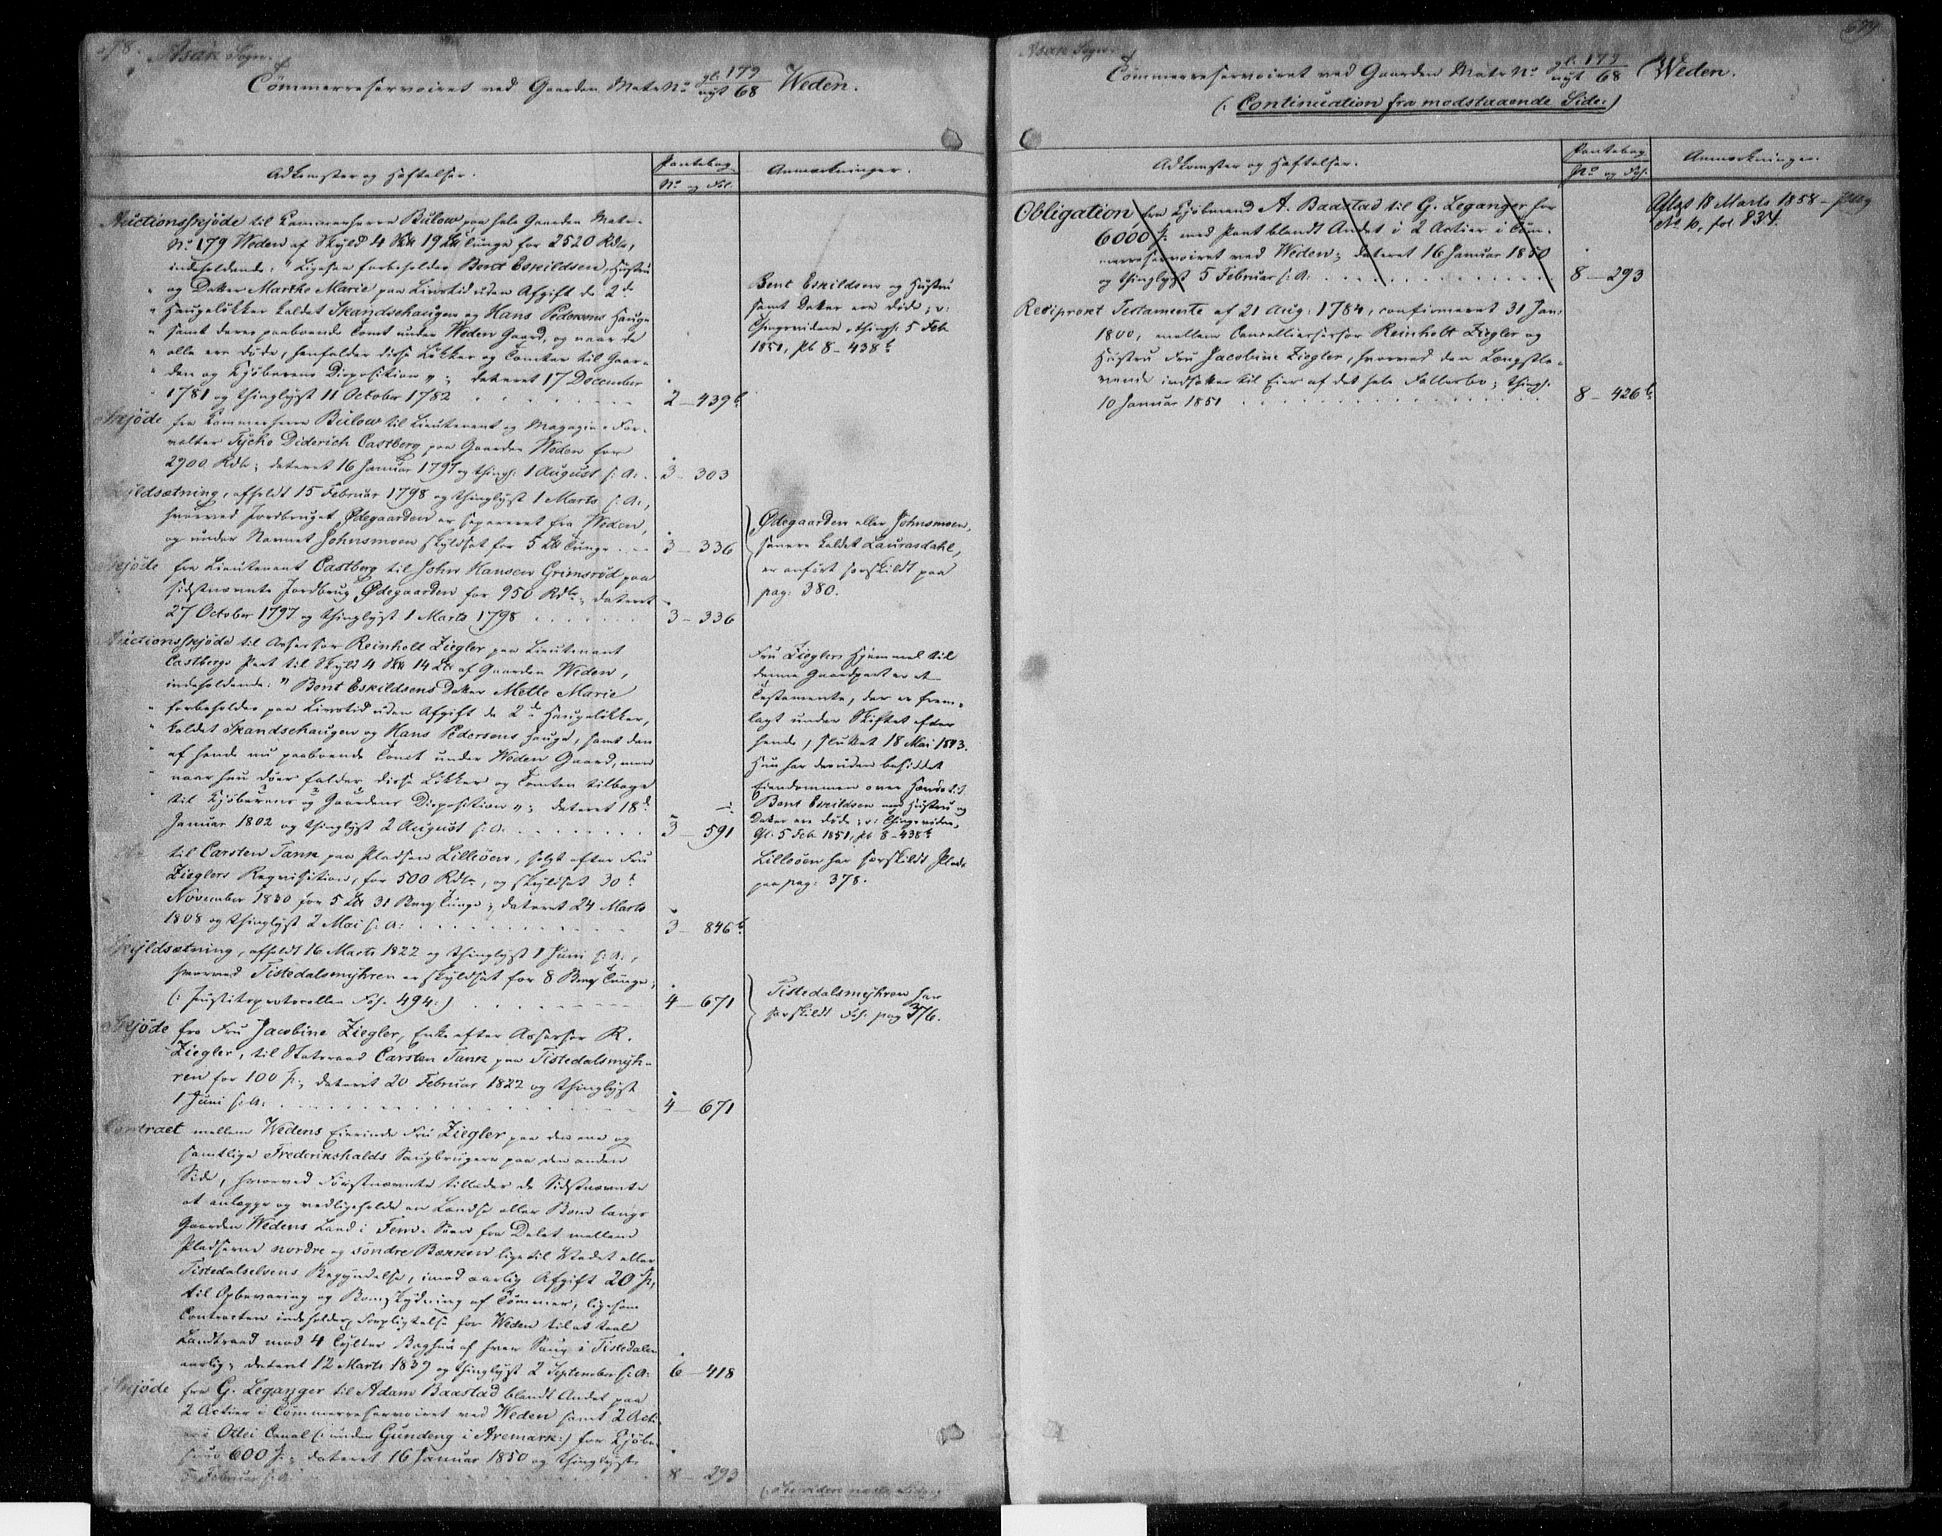 Asak Sogn.
Tømmerreservoiret ved Gaarden Matr No gl. 179 / nyt 68 Weden.
Adkomster og Hæftelser.
Pantebog
No og Fol.
Anmærkninger.
Auctionsskjøde til Kammerherre Bülow paa hele Gaarden Matr.
No 179 Weden af Skyld 4 Sk℔ 19 ℔ Tunge for 2520 Rdlr,
indeholdende: "Ligesaa forbeholdes Bent Eskildsen, Hustru
" og Datter Marthe Marie paa Livstid uden Afgift de 2de
" Haugeløkker kaldet Skandsehaugen og Hans Pedersens Hauge
" samt deres paaboende Tomt under Weden Gaard, og naar de
" alle ere døde, henfalder disse Løkker og Tomter til Gaar-
" den og Kjøberens Disposition"; dateret 17 December
1781 og thinglyst 11 October 1782
2 — 439b
Bent Eskildsen og Hustru
samt Datter ere døde; v:
Thingsvidne, thingl: 5 Feb
1851, Pb 8 – 438b
Skjøde fra Kammerherre Bülow til Lieutenant og Magazin-For-
valter Tycho Diderich Castberg paa Gaarden Weden for
2900 Rdlr; dateret 16 Januar 1797 og thingl: 1 August s: A:
3 – 303
Skyldsætning, afholdt 15 Februar 1798 og thinglyst 1 Marts s: A:,
hvorved Jordbruget Ødegaarden er separeret fra Weden,
og under Navnet Johnsmoen skyldsat for 5 ℔ Tunge
3 – 336
Ødegaarden eller Johnsmoen,
senere kaldet Laurasdahl,
er anført særskildt paa
pag: 380.
Skjøde fra Lieutenant Castberg til John Hansen Grimsrød paa
sidstnævnte Jordbrug Ødegaarden for 950 Rdlr; dateret
27 October 1797 og thinglyst 1 Marts 1798
3 – 336
Auctionsskjøde til Assessor Reinholt Ziegler paa Lieutenant
Castbergs Part til Skyld 4 Sk℔ 14 ℔ af Gaarden Weden,
indeholdende: "Bent Eskildsens Datter Mette Marie
" forbeholdes paa Livstid uden Afgift de 2de Haugeløkker,
" kaldet Skandsehaugen og Hans Pedersens Hauge, samt den
" af hende nu paaboende Tomt under Weden Gaard, men
" naar hun døer falder disse Løkker og Tomten tilbage
til Kjøberens og Gaardens Disposition"; dateret 18de
Januar 1802 og thinglyst 2 August s: A:
3 – 591
Fru Zieglers Hjemmel til
denne Gaardpart er et
Testamente, der er frem-
lagt under Skiftet efter
hende, sluttet 18 Mai 1843.
Hun har desuden besiddet
Eiendommen over Hævdstid
Bent Eskildsen med Hustru og
Datter ere døde; v: Thingsvidne,
thgl. 5 Feb 1851, Pb 8 – 438b
til Carsten Tank paa Pladsen Lilleøen, solgt efter Fru
Zieglers Reqvisition, for 500 Rdlr, og skyldsat 30te
November 1830 for 5 ℔ 31 Bmg Tunge; dateret 24 Marts
1808 og thinglyst 2 Mai s: A:
3 – 846b
Lilleøen har særskildt Plads
paa pag: 378.
Skyldsætning, afholdt 16 Marts 1822 og thinglyst 1 Juni s: A:,
hvorved Tistedalsmyhren er skyldsat for 8 Bmg Tunge;
(: Justitsprotocollen Fol. 494:)
4 – 671
Tistedalsmyhren har
særskildt Fol. pag 376.
Skjøde fra Fru Jacobine Ziegler, Enke efter Assessor R.
Ziegler, til Statsraad Carsten Tank paa Tistedalsmyh-
ren for 100 Sp; dateret 20 Februar 1822 og thinglyst
1 Juni s: A:
4 – 671
Contract mellem Wedens Eierinde Fru Ziegler paa den ene og
samtlige Frederikshalds Saugbrugere paa den anden
Side, hvorved Førstnævnte tillader de Sidstnævnte
at anlægge og vedligeholde en Lændse eller Bom langs
Gaarden Wedens Land i Fem-Søen fra Delet mellem
Pladserne nordre og søndre Bækken lige til Stedet eller
Tistedalselvens Begyndelse, imod aarlig Afgift 20 Sp,
til Opbevaring og Bomskydning af Tømmer, ligesom
Contracten indeholder Forpligtelse for Weden til at taale
Landtraad mod 4 Tylter Baghun af hver Saug i Tistedalen
aarlig; dateret 12 Marts 1839 og thinglyst 2 September s: A:
6 – 418
Skjøde fra G. Leganger til Adam Baastad blandt Andet paa
2 Actier i Tømmerreservoiret ved Weden samt 2 Acti-
er i Otti Canal (: under Gundeng i Aremark:) for Kjøbe-
sum 600 Sp; dateret 16 Januar 1850 og thinglyst
5 Februar s: A:
8 – 293
(: See videre næste Side:)
679
Asak Sogn.
Tømmerreservoiret ved Gaarden Matr No gl. 179 / nyt 68 Weden.
(: Continuation fra modstaaende Side:)
Adkomster og Hæftelser.
Pantebog
No og Fol.
Anmærkninger.
Obligation fra Kjøbmand A. Baastad til G. Leganger for
6000 Sp. med Pant blandt Andet i 2 Actier i Tøm-
merreservoiret ved Weden; dateret 16 Januar 1850
og thinglyst 5 Februar s: A:
8 – 293
Aflyst 18 Marts 1858 – Pbog
No 10, fol. 834.
Reciprokt Testamente af 21 Aug: 1784, confirmeret 31 Jan:
1800, mellem Cancelliassessor Reinholt Ziegler og
Hustru Fru Jacobine Ziegler, hvorved den Længstle-
vende indsættes til Eier af det hele Fællesbo; thingl:
10 Januar 1851
8 – 426b